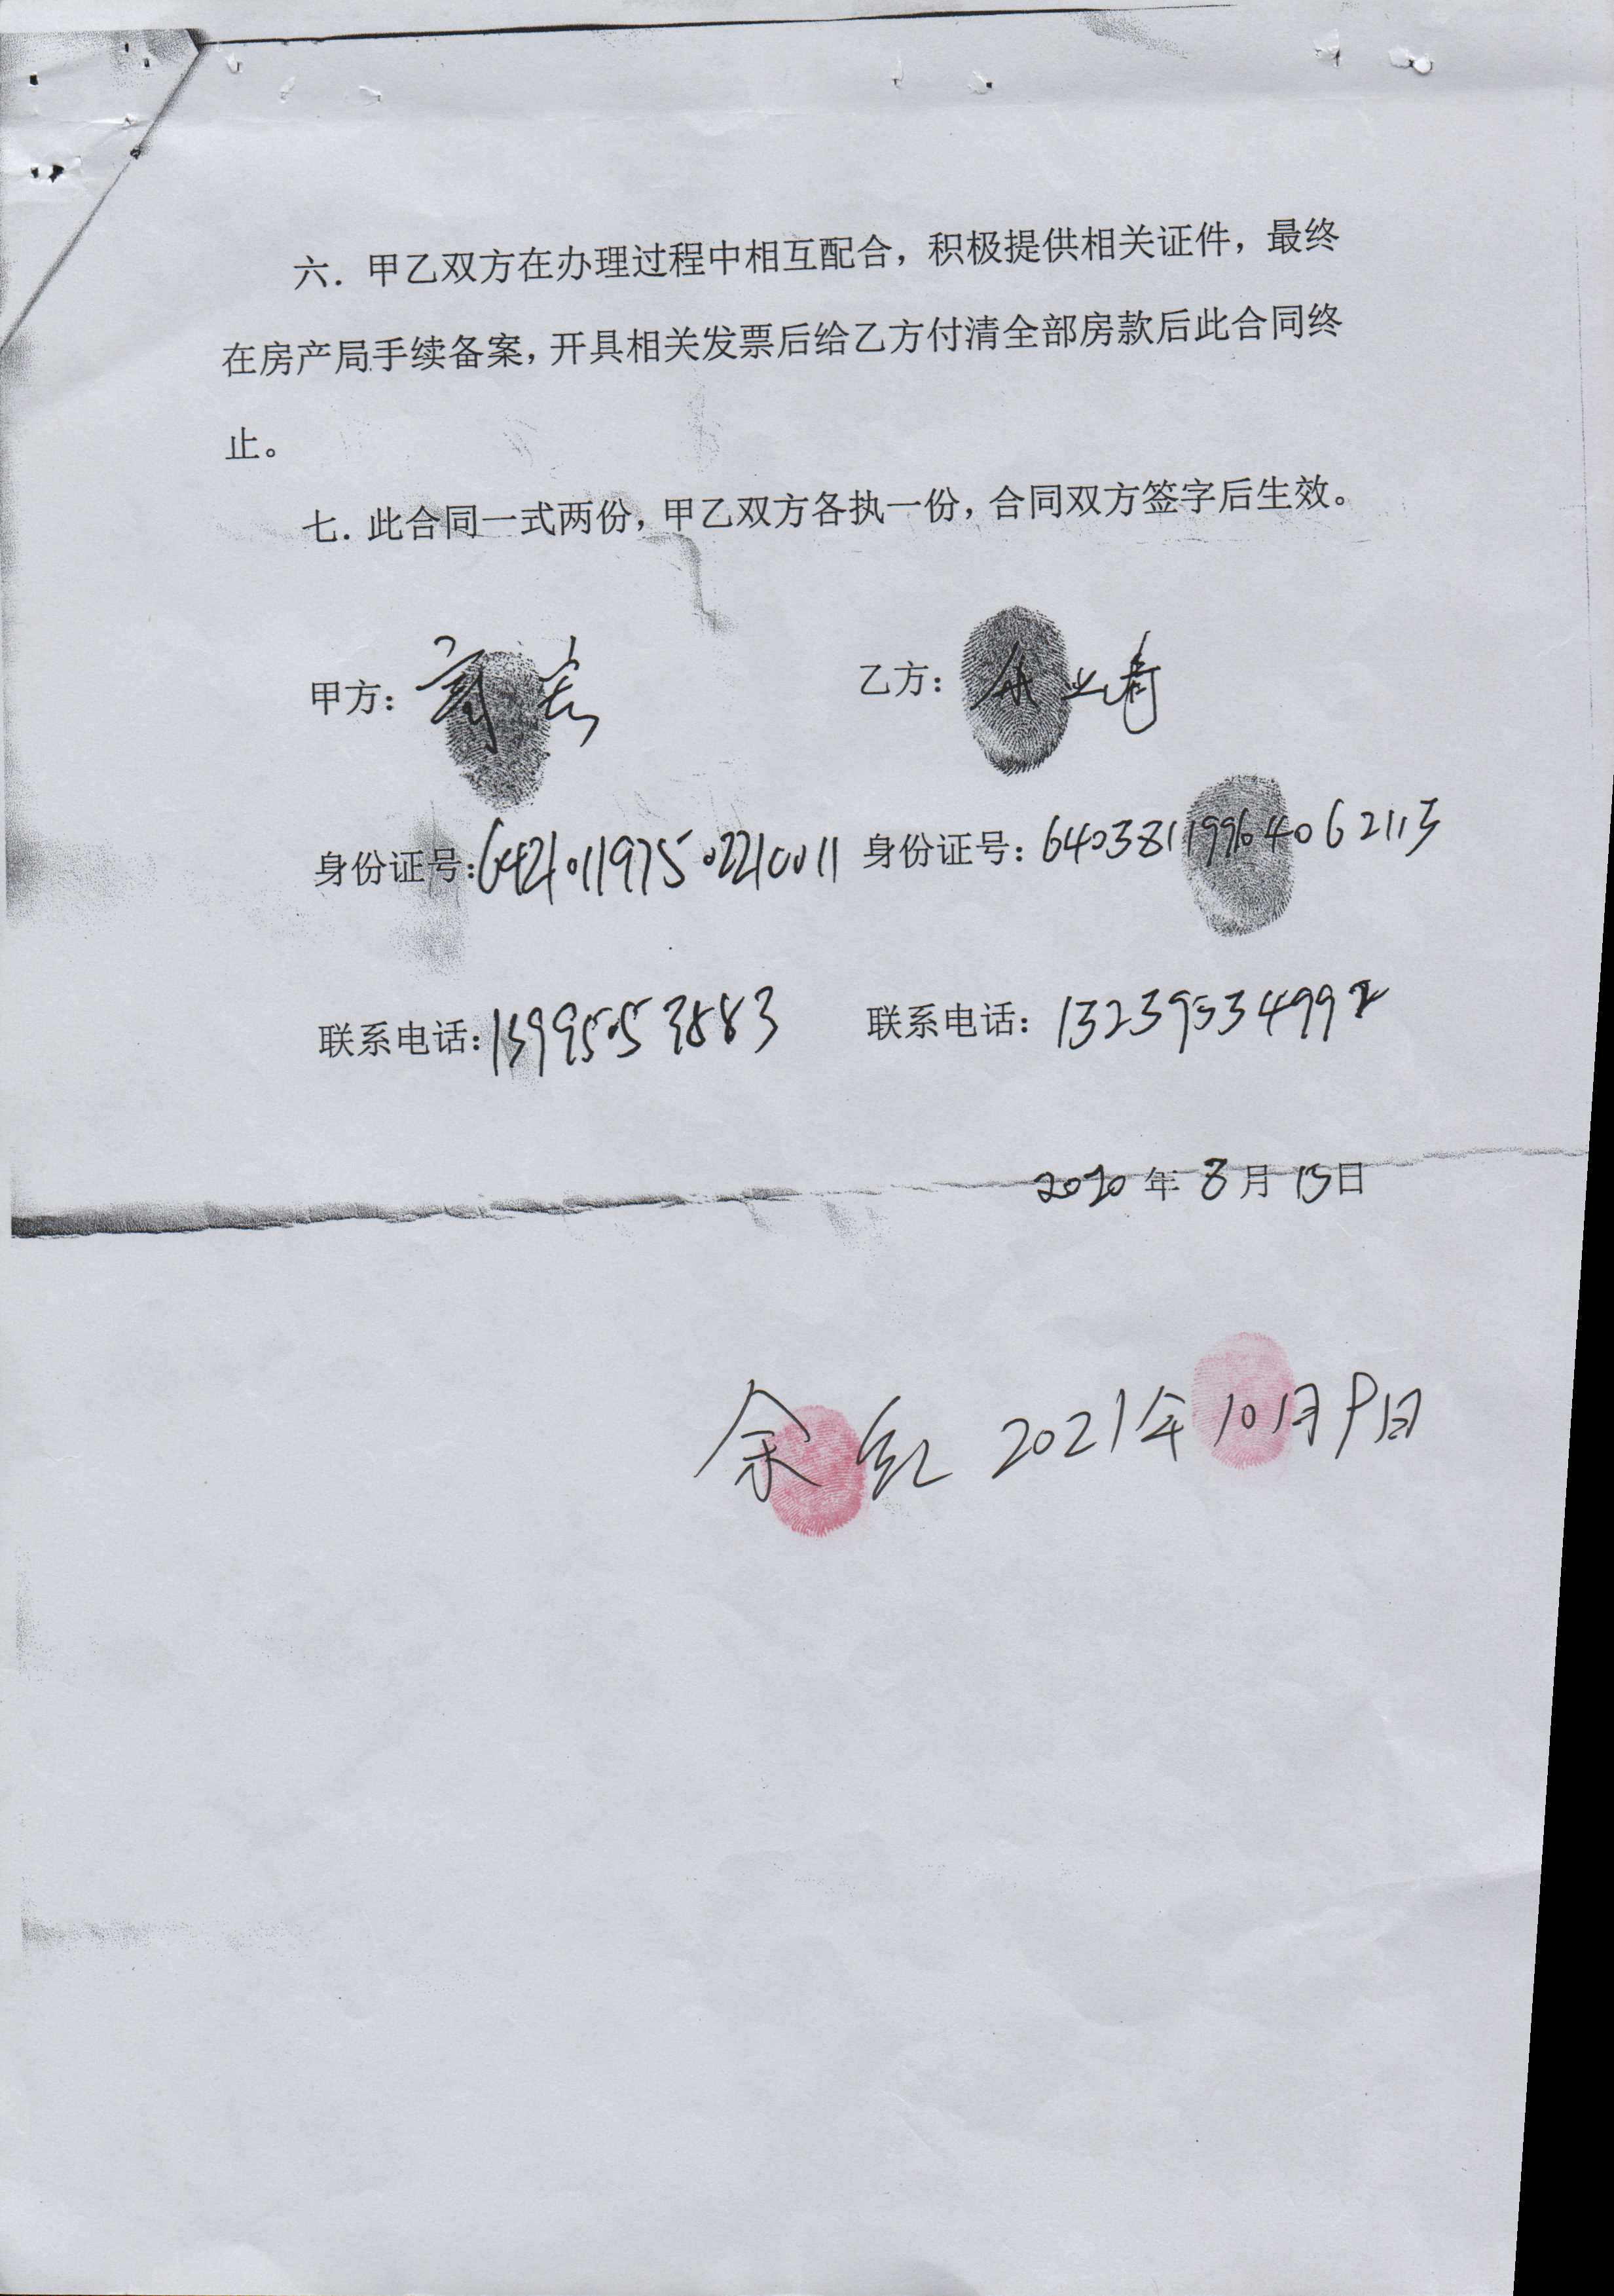 六．甲乙双方在办理过程中相互配合，积极提供相关证件，最终
在房产局手续备案，开具相关发票后给乙方付清全部房款后此合同终
止。
七．此合同一式两份，甲乙双方各执一份，合同双方签字后生效。
甲方： 乙方：
身份证号：642101197502210011 身份证号：64038119964062113
联系电话：13995053883 联系电话：13239534992
2020年8月15日
余红 2021年10月9日